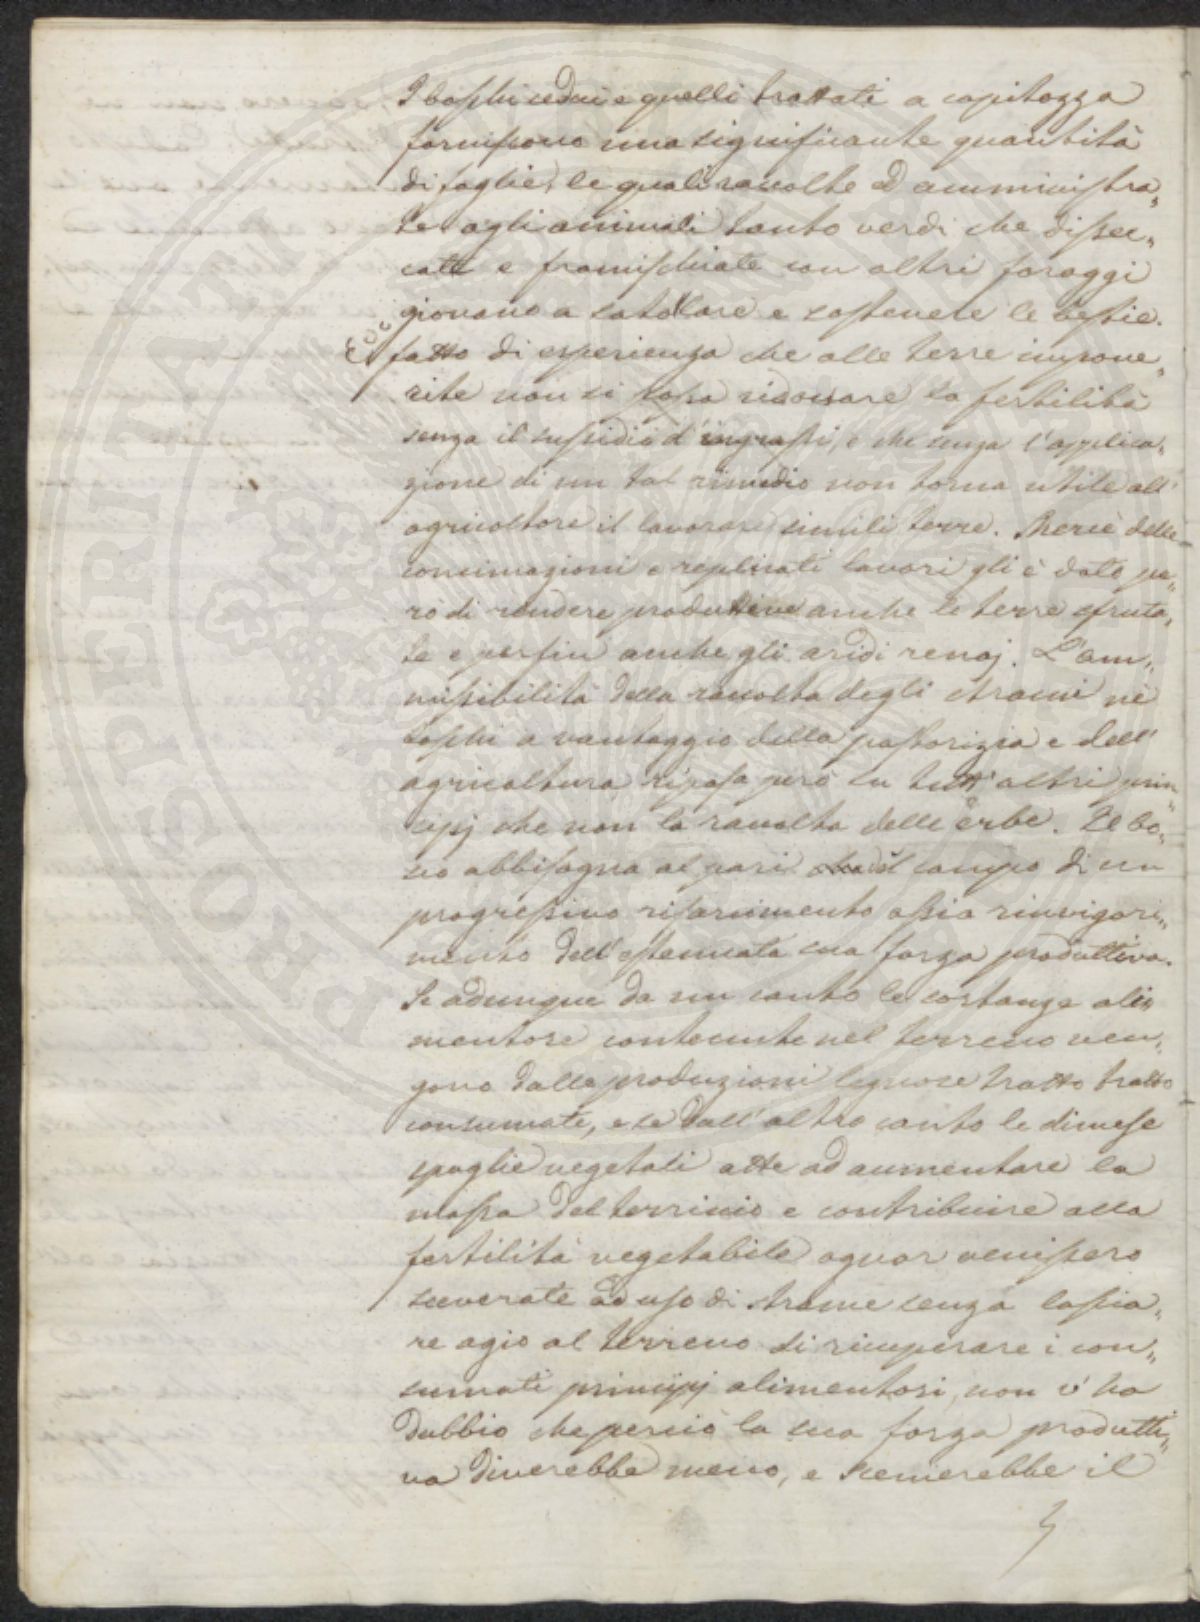 I boschi cedui e quelli trattati a capitozza
forniscono una significante quantità
di foglie, le quali raccolte ed amministra„
te agli animali tanto verdi che dissec„
cate e framischiate con altri foraggi
giovano a satollare e sostenere le bestie.
Ecci fatto di esperienza che alle terre impove„
rite non si possa ridonare la fertilità
senza il sussidio d'ingrassi, e che senza l'applica„
zione di un tal rimedio non torna utile all'
agricoltore il lavorare simili terre. Mercè delle
concimazioni e replicati lavori gli è dato pe„
rò di rendere produttive anche le terre sfruta„
te e perfin anche gli aridi renaj. L'am„
missibilità della raccolta degli strami nei
boschi a vantaggio della pastorizia e dell'
agricoltura riposa però su tutt'altri prin„
cipj che non la raccolta delle erbe. Il bo„
sco abbisogna al pari del campo di un
progressivo risarcimento ossia rinvigori„
mento dell'estenuata sua forza produttiva.
Se adunque da un canto le sostanze ali„
mentore contenute nel terreno ven„
gono dalle produzioni legnose tratto tratto
consumate, e se dall'altro canto le dimesse
spoglie vegetali atte ad aumentare la
massa del terriccio e contribuire alla
fertilità vegetabile ognor venissero
sceverate ad uso di strame senza lascia„
re agio al terreno di ricuperare i con„
sumati principj alimentosi, non v'ha
dubbio che perciò la sua forza produtti„
va diverebbe meno, e scemerebbe il
PROSPERITATI PUBLICAE